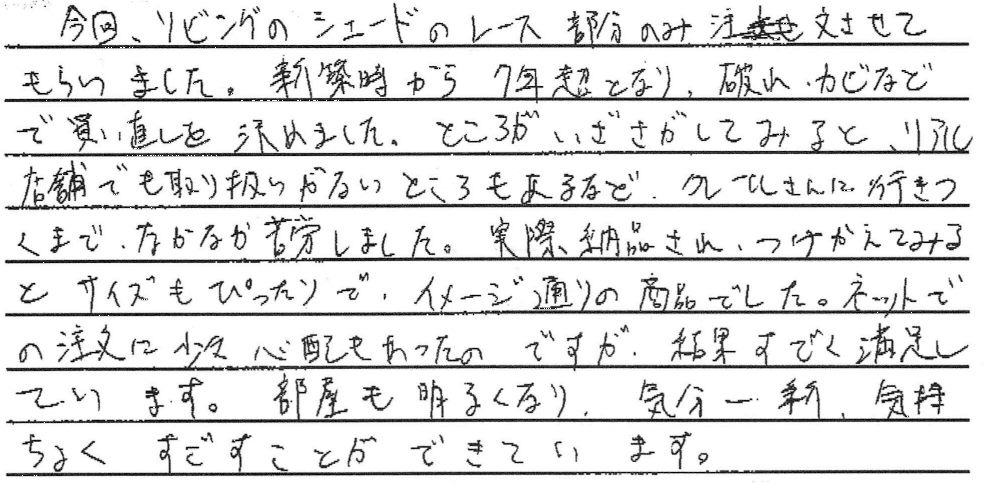 今回、リビングのシェードのレース部分のみ注文させて
もらいました。新築時から7年超となり、破れ・カビなど
で買い直しを決めました。ところがいざさがしてみると、リアル
店舗でも取り扱いがないところもあるなど、クレールさんに行きつ
くまで、なかなか苦労しました。実際、納品され、つけかえてみる
とサイズもぴったりで、イメージ通りの商品でした。ネットで
の注文に少々心配もあったのですが、結果すごく満足し
ています。部屋も明るくなり、気分一新、気持
ちよくすごすことができています。